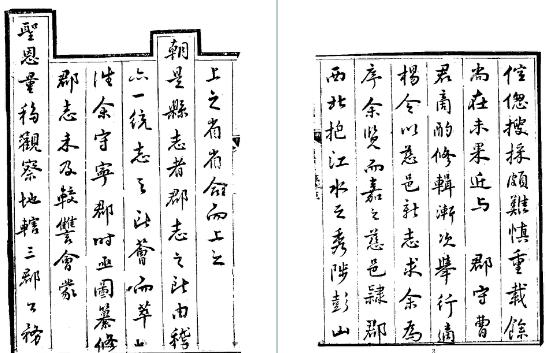 上之省省合而上之
朝是縣志者郡志之所由稽
亦一統志之所薈而萃也
往余守寧郡時亟圖纂修
郡志未及較讐會蒙
聖恩量移觀察地轄三郡公務
倥傯搜採頗難慎重載餘
尚在未果近与 郡守曹
君商酌修輯漸次舉行適
楊令以慈邑新志求余為
序余覽而嘉之慈邑隸郡
西北抱江水之秀陟彭山